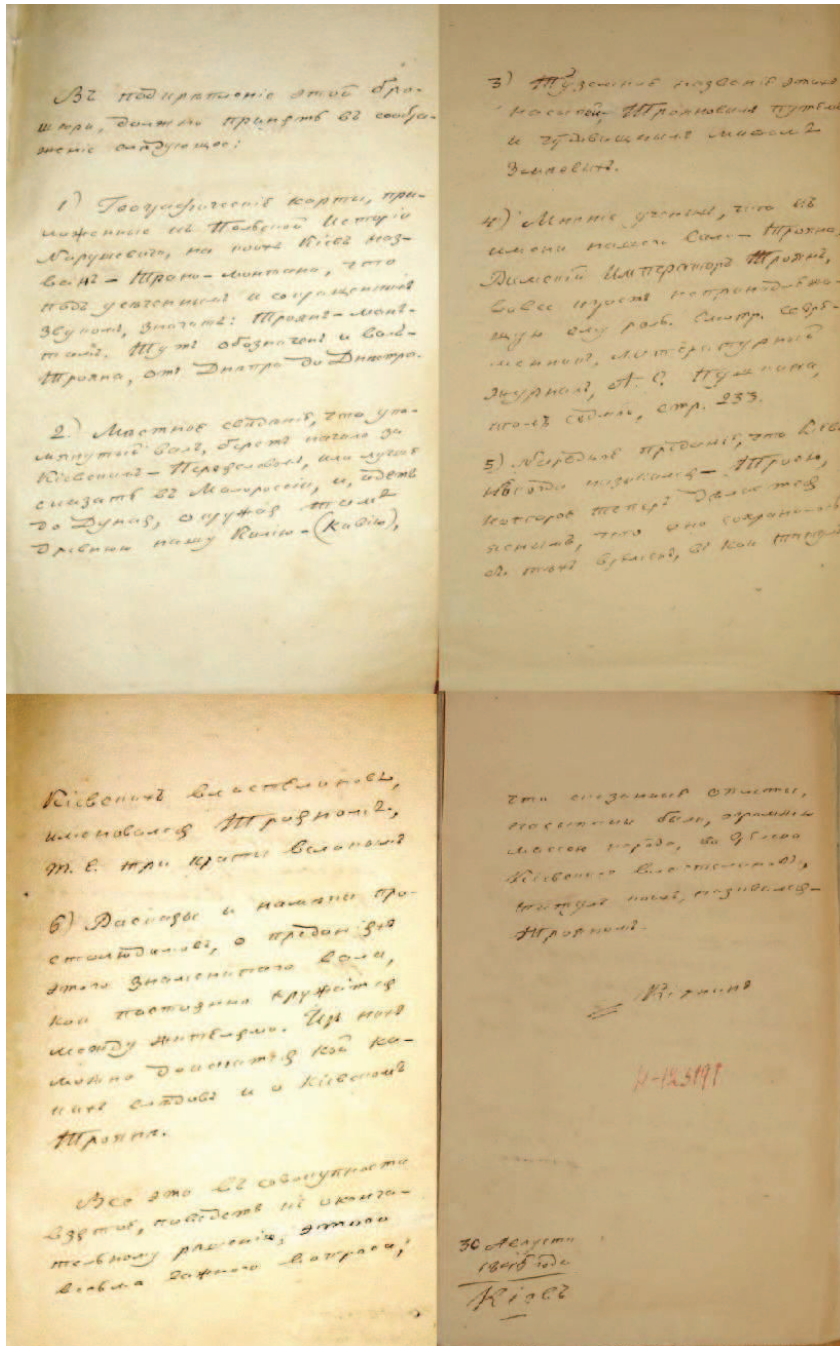 Въ подкрѣпленіе этой бро-
шюры, должно принять въ сообра-
женіе слѣдующее:
1) Географическіе карты, при-
ложенные къ Польской Исторіи
Нарушевича, на коихъ Кіевъ наз-
ванъ – Трано-монтано, что
подъ усеченнымъ и сокращеннымъ
звукомъ, значитъ: Троянъ-мон-
тан. Тутъ обозначенъ и валъ
Трояна, отъ Днѣпра до Днѣстра.
2) Мѣстное свѣденіе, что упо-
мянутый валъ, беретъ начало за
Кіевскимъ – Переяславом, или лучше
сказать въ Малороссіи, и, идетъ
до Дуная, окружая тамъ
древнюю нашу Килію – (Кавію),
3) Туземное названіе этихъ
насыпей, Трояновымъ путемъ
и чудовищнымъ маваломъ
Земповитъ.
4) Мнѣніе ученыхъ, что въ
имени нашего вала – Трояна,
Римскій Императоръ Троянъ,
вовсе играетъ
ему роль. Смотр. совре-
менникъ, литературный
журналъ, А. С. Пушкина,
томъ седмь, стр. 233.
5) Народное преданіе, что Кіевъ
нѣкогда назывался – Троею,
которое теперь дѣлается
яснымъ, что оно сохранилось
съ тѣхъ временъ, въ кои титулъ
Кіевскихъ властелиновъ,
именовался Трояномъ,
т. е. три краты великимъ
6) Расказы и про-
столюдиновъ, о преданіяхъ
этого знаменитаго вала,
кои постоянно кружатся
между жителями. Изъ нихъ
можно доискаться кой ка-
кихъ слѣдовъ и о Кіевскомъ
Троянѣ.
Все это въ совокупности
взятое, поведетъ къ оконча-
тельному рѣшенію, этого
весьма важнаго вопроса,
что сказанные оплоты,
насыпаны были, огромною
массою народа, во время
Кіевскихъ властелиновъ,
титулъ коихъ, назывался –
Трояномъ.
30 Августа
года
Кіевъ